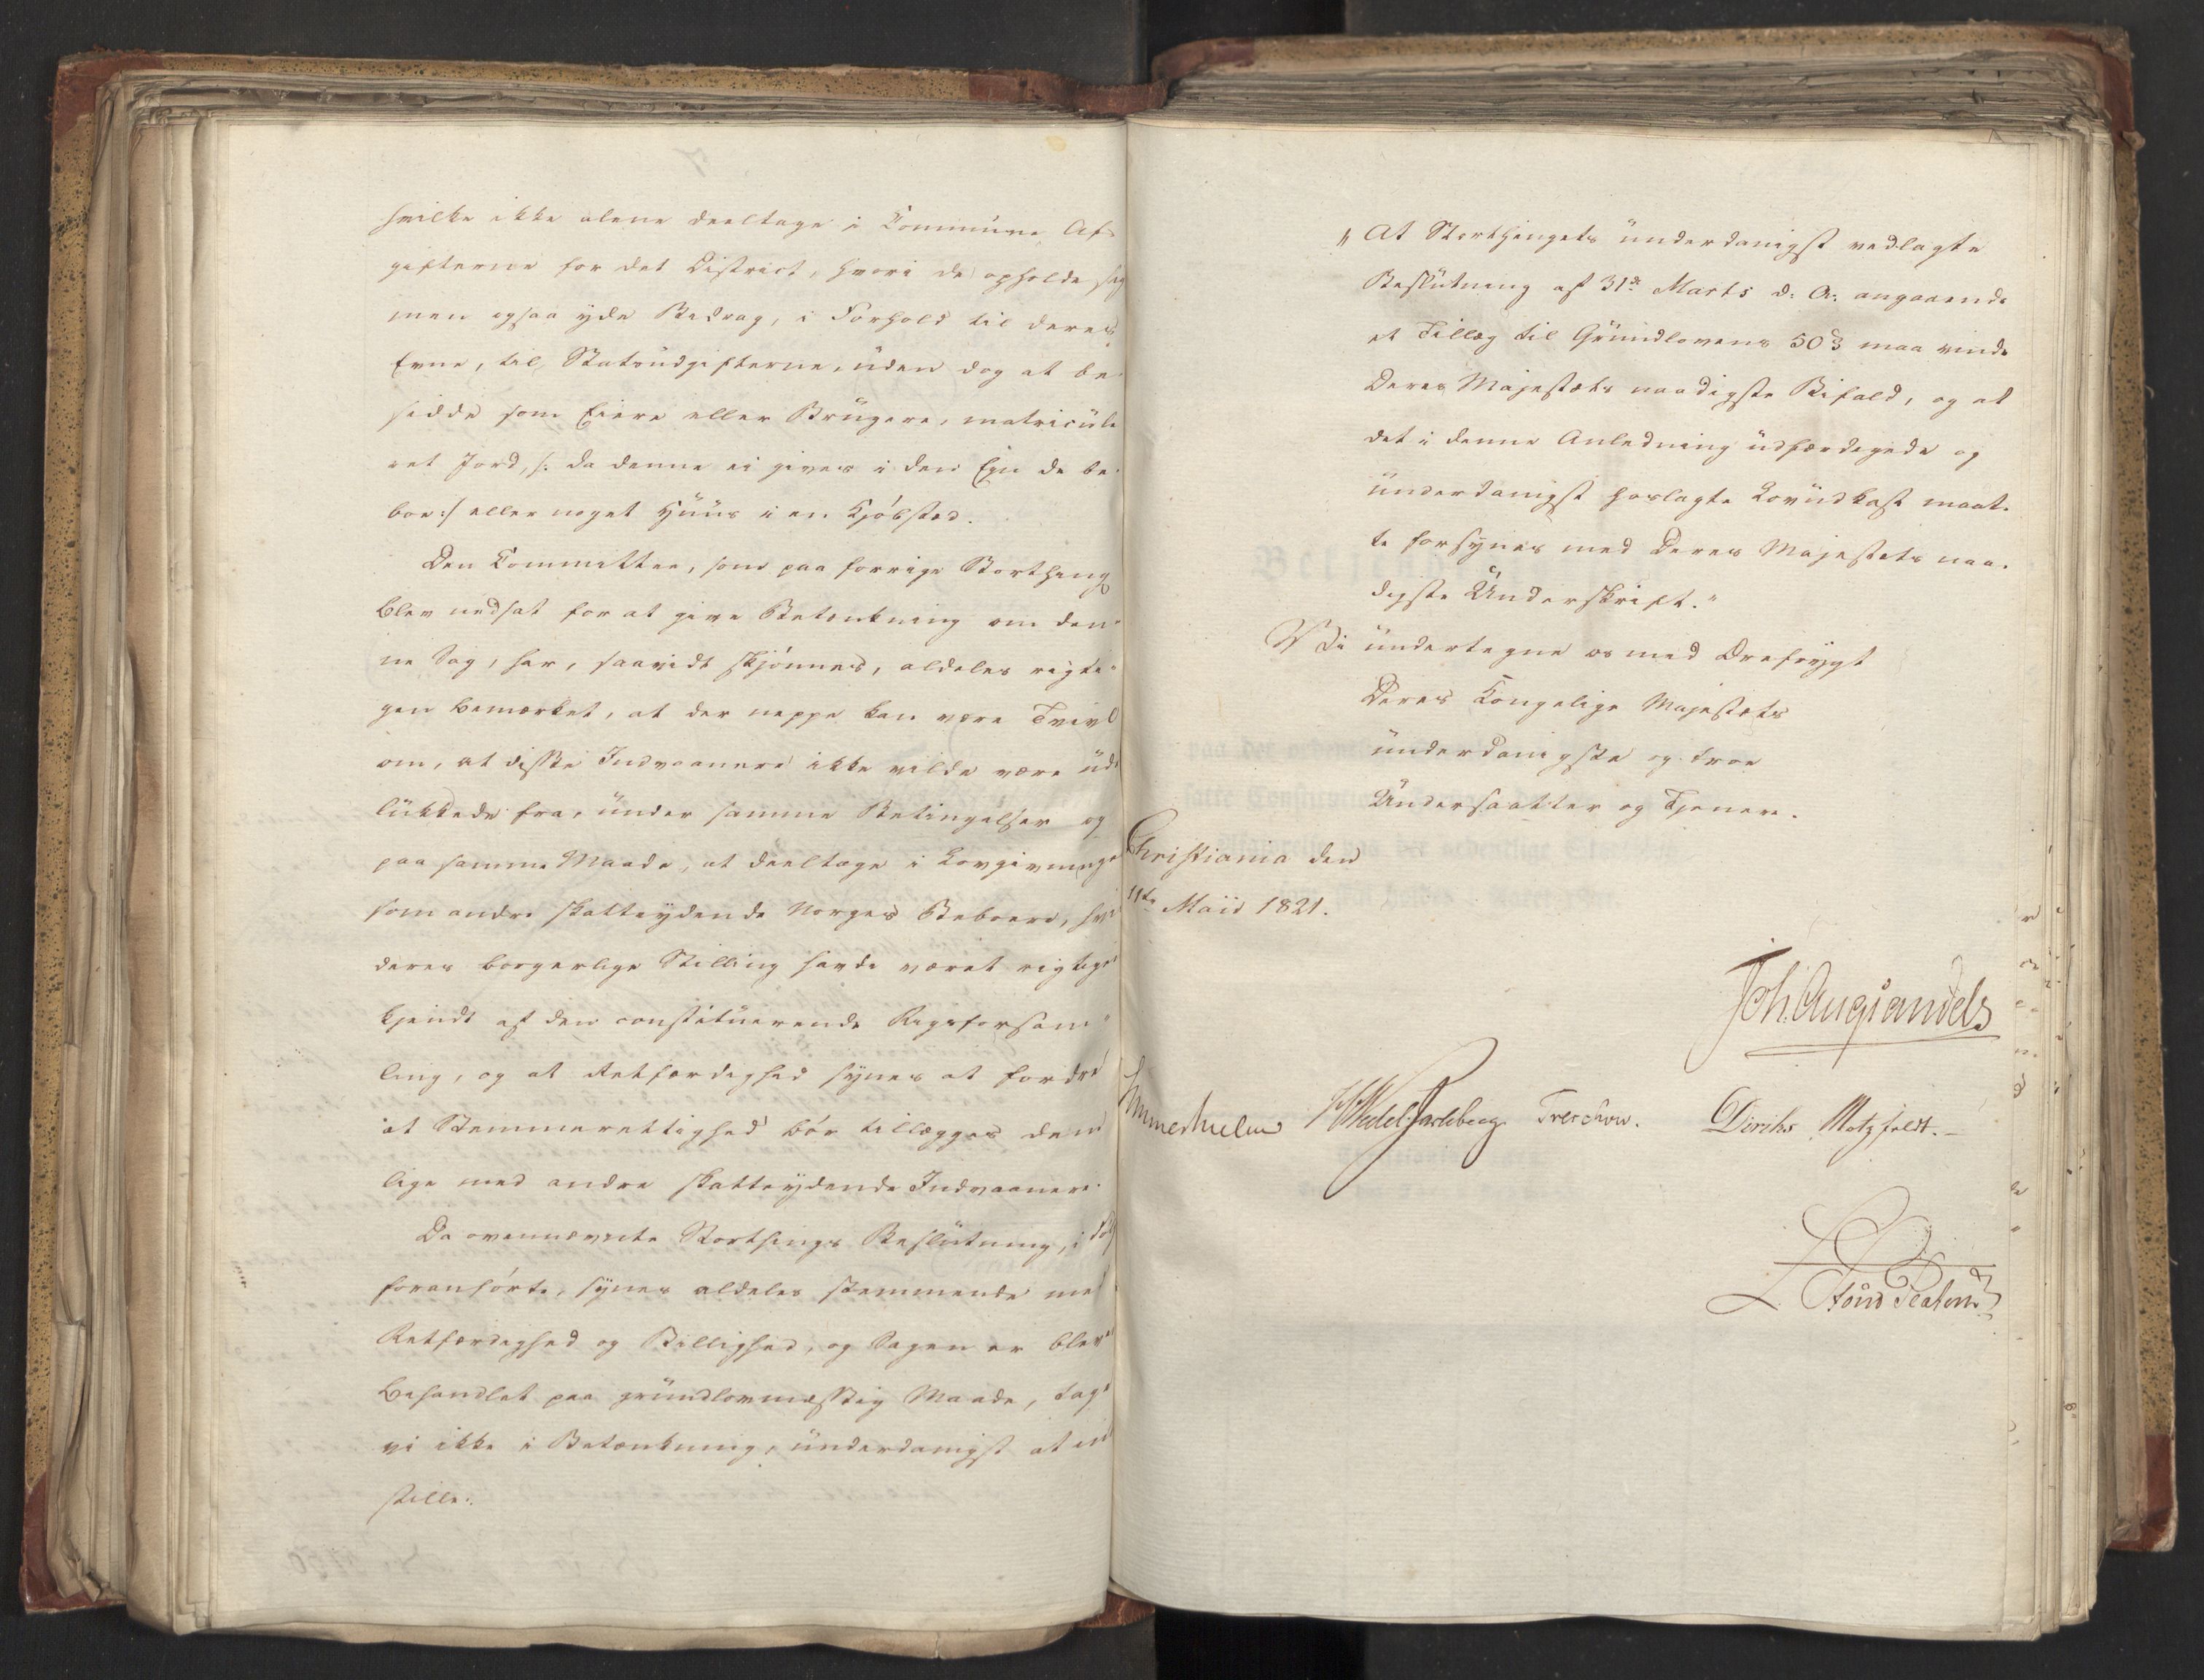 hvilke ikke alene deeltage i Commune Af-
gifterne for det District, hvori de opholde sig
men ogsaa yde Bidrag, i Forhold til deres
Evne, til Statsudgifterne, uden dog at be-
sidde som Eiere eller Brugere, matricule-
ret Jord, /: da denne ei gives i den Egn de be-
boe :/ eller noget Huus i en Kjöbstad.
Den Committee, som paa forrige Storthing
blev nedsat for at give Betænkning om den-
ne Sag, har, saavidt skjönnes, aldeles rigti-
gen bemærket, at der neppe kan være Tvivl
om, at disse Indvaanere ikke vilde være ude-
lukkede fra, under samme Betingelser og
paa samme Maade, at deeltage i Lovgivninge
som andre skatteydende Norges Beboere, hvis
deres borgerlige Stilling havde været rigtigen
kjendt af den constituerende Rigsforsam-
ling, og at Retfærdighed synes at fordre
at Stemmerettighed bör tillægges dem
lige med andre skatteydende Indvaanere.
Da ovennævnte Storthings Beslutning, i Fölg
foranförte, synes aldeles stemmende med
Retfærdighed og Billighed, og Sagen er bleven
behandlet paa grundlovmæssig Maade, tage
vi ikke i Betænkning, underdanigst at ind-
stille:
"At Storthingets underdanigst vedlagte
Beslutning af 31te Marts d: A: angaaende
et Tillæg til Grundlovens 50 § maa vinde
Deres Majestæts naadigste Bifald, og at
det i denne Anledning udfærdigede og
underdanigst hoslagte Lovudkast maat-
te forsynes med Deres Majestæts naa-
digste Underskrift."
Vi undertegne os med Ærefrygt
Deres Kongelige Majestæts
underdanigste og troe
Undersaatter og Tjenere.
Christiania den
11te Maii 1821.
Joh. Aug Sandels
Sommerhielm H Wedel Jarlsberg Treschow. Diriks Motzfeldt.